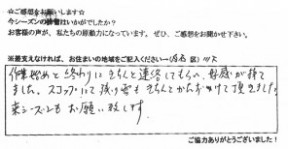 ☆ご感想をお願いします☆
今シーズンの排雪はいかがでしたか？
お客様の声が、私たちの原動力になっています。ぜひ、ご感想をお聞かせ下さい。
※差支えなければ、お住まいの地域をご記入ください→(
区)
作業始めと終わりにきちんと連絡してもらい、好感が持て
ました。スコップにて残り雪もきちんとかたづけて頂きました。
来シーズンもお願い致します。
ご協力ありがとうございました！